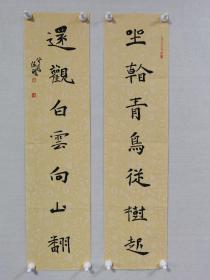 坐翰青鳥従樹起
還觀白雲向山翻